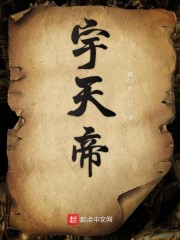 宇天帝
起点中文网